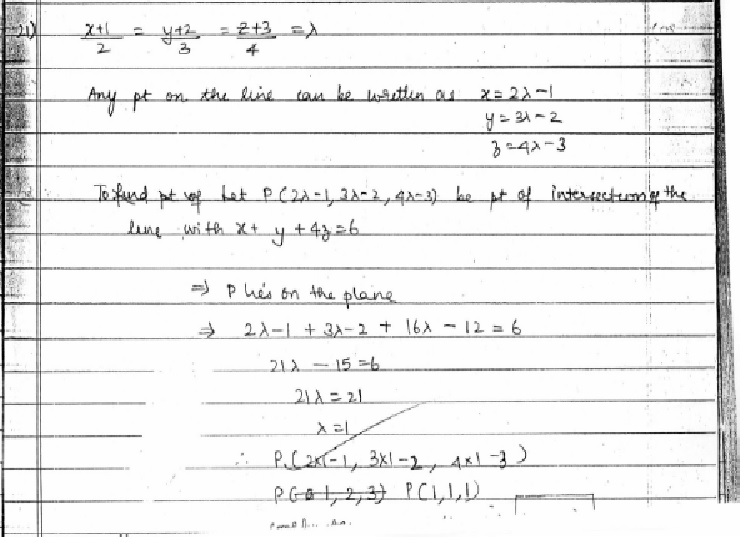 21) x+1/2 = y+2/3 = z+3/4 = λ
Any pt on the line can be written as x = 2λ-1
y = 3λ-2
z = 4λ-3
To find pt of Let P(2λ-1, 3λ-2, 4λ-3) be pt of intersection of the
line with x+ y +4z =6
⇒ P lies on the plane
⇒ 2λ-1 + 3λ-2 + 16λ - 12 = 6
21λ - 15 = 6
21λ = 21
λ = 1
∴ P(2×1-1, 3×1-2, 4×1-3)
P(1, 2, 3) P(1,1,1)